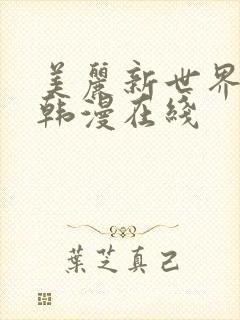 美麗新世界
韩漫在綫
葉芝真己